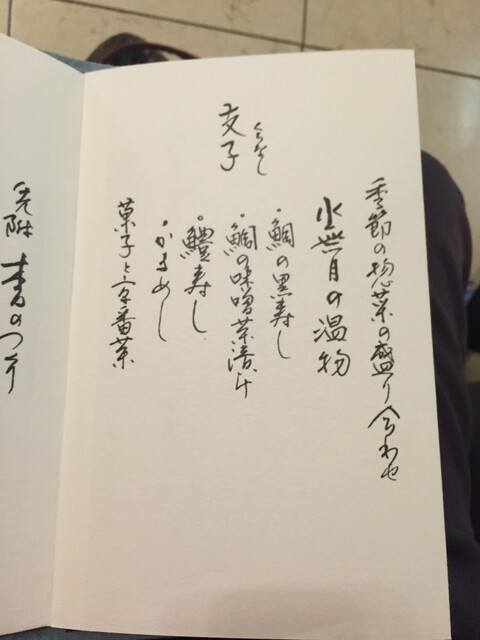 支子
くちなし
季節の惣菜の盛り合わせ
水無月の温物
・鯛の黒寿し
・鯛の味噌茶漬け
・鱧寿し
・かまめし
菓子と京番茶
先附